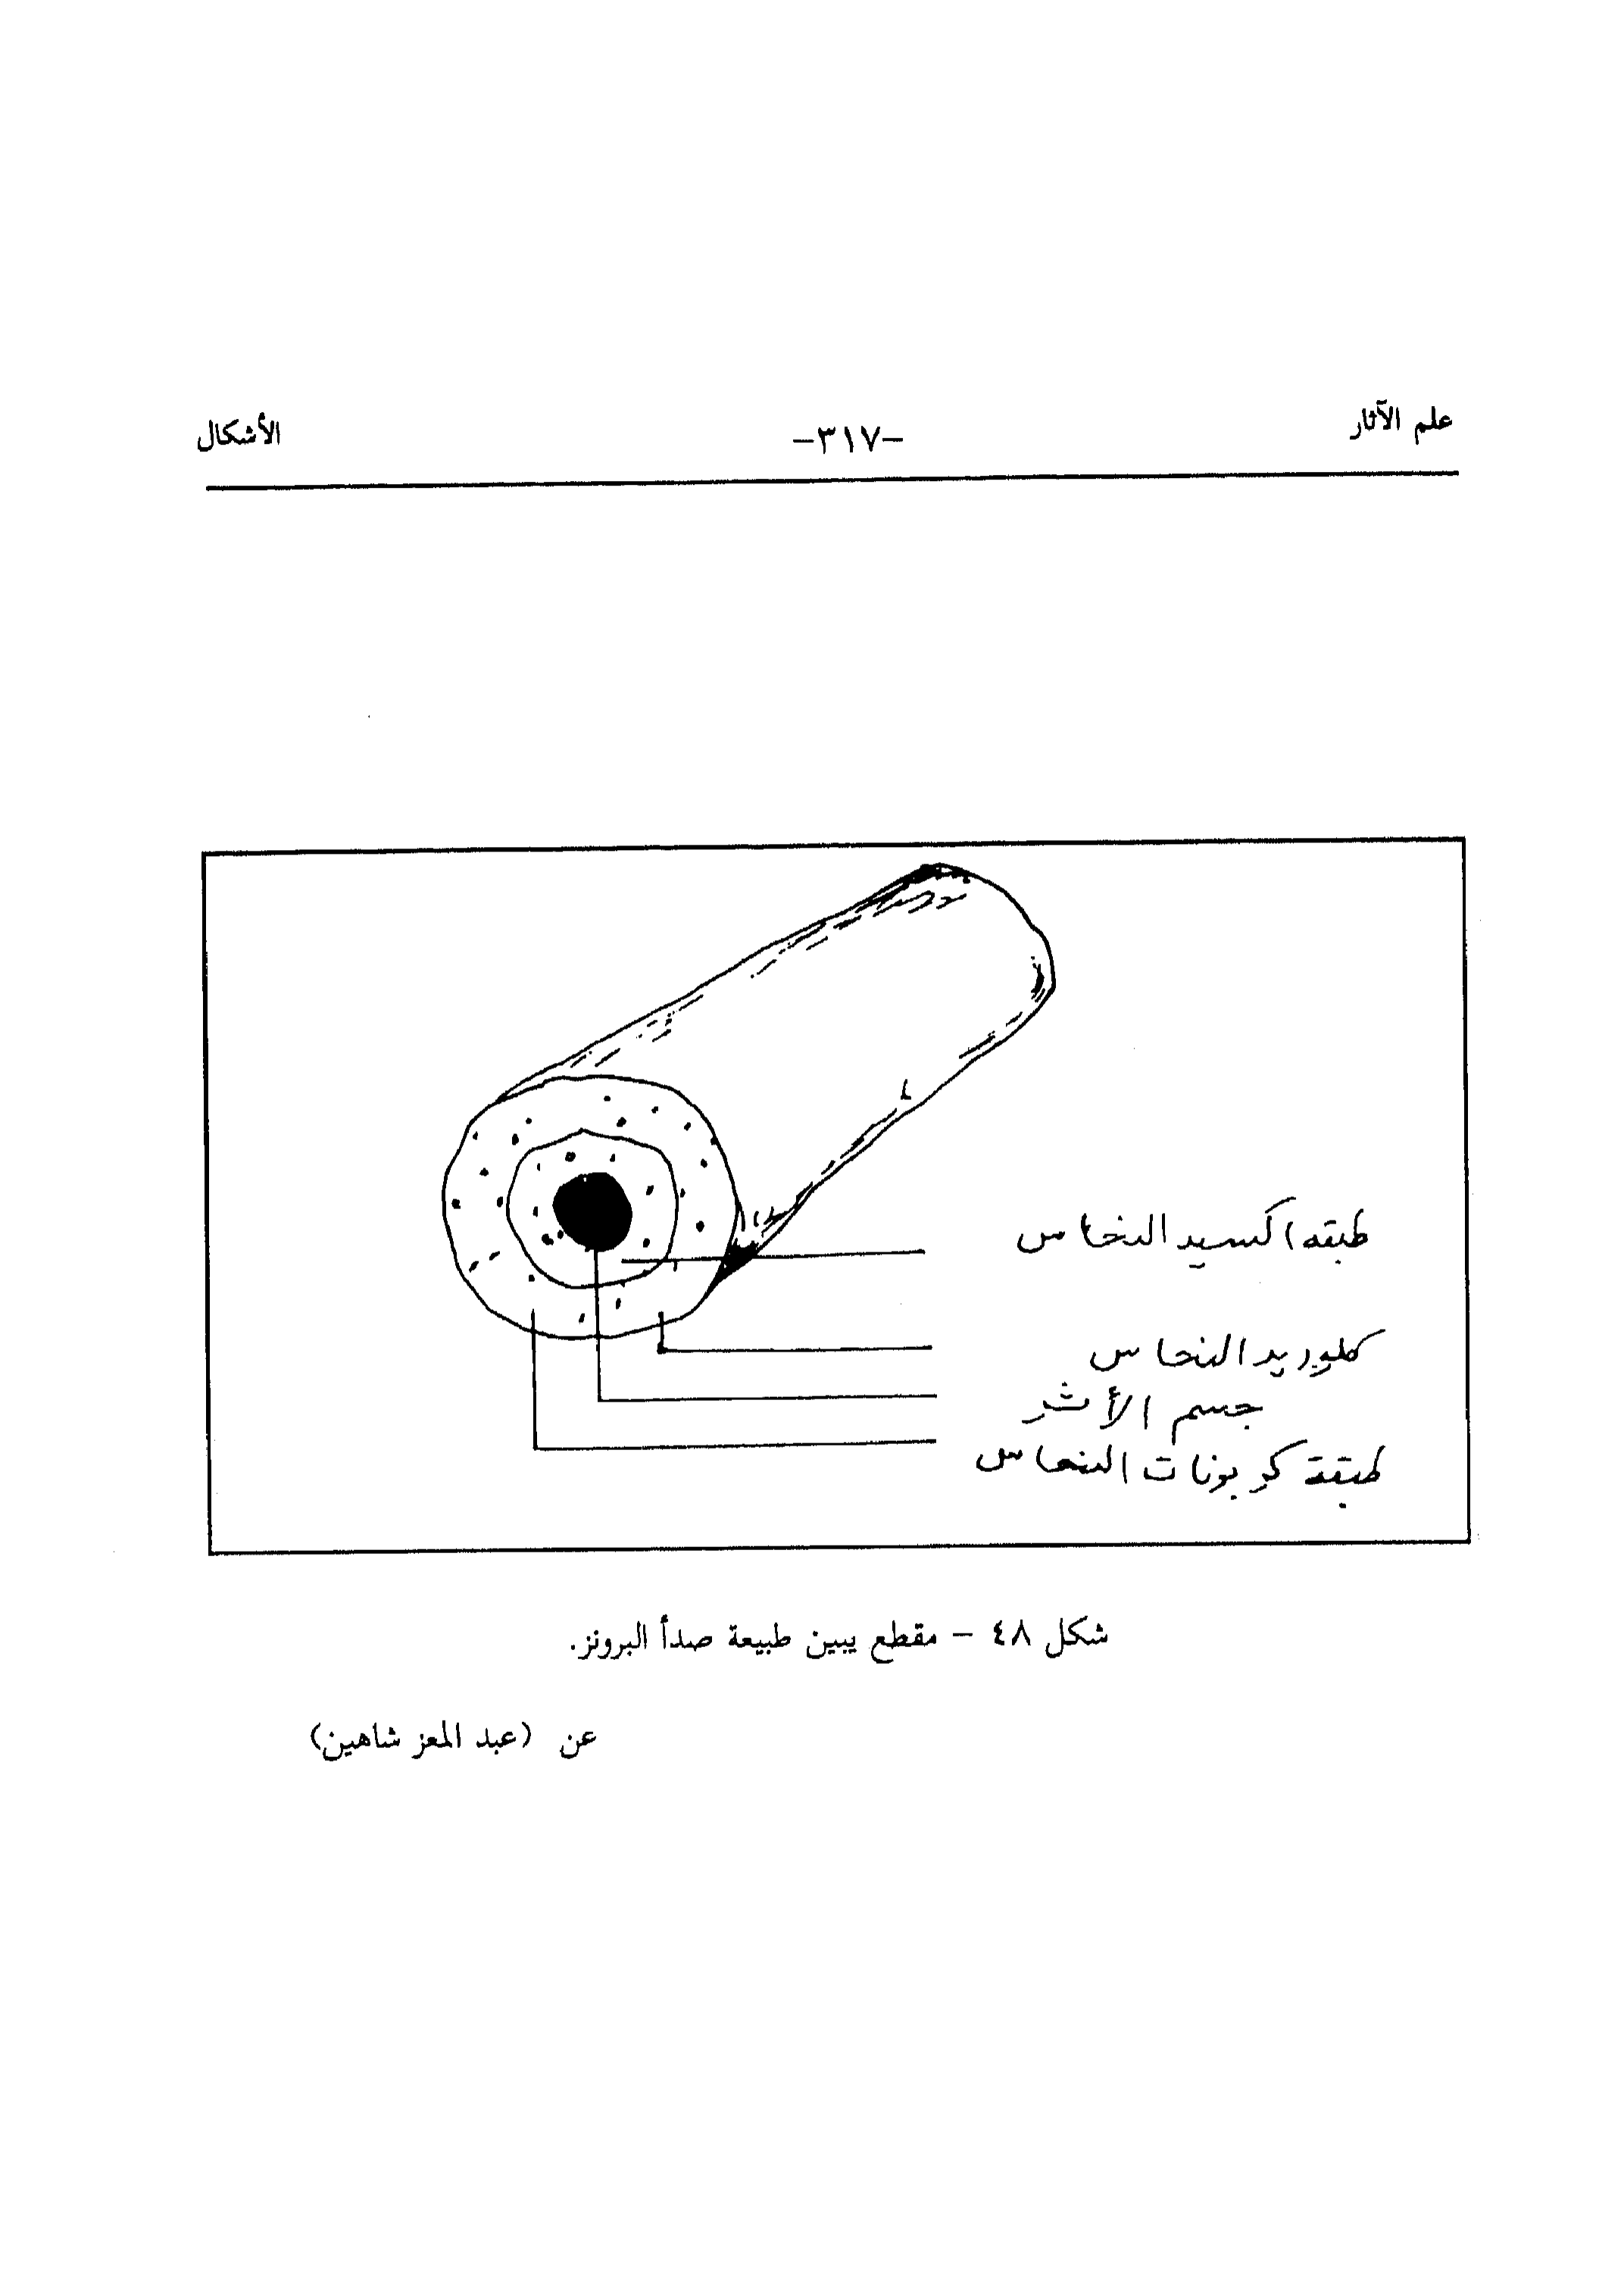 علم الآثار -٣١٧- الأشكال
طبقه اكسيد النحاس
كلوريد النحاس
جسم الأثر
طبقة كربونات النحاس
شكل ٤٨ - مقطع يبين طبيعة صدأ البرونز.
عن (عبد المعز شاهين)